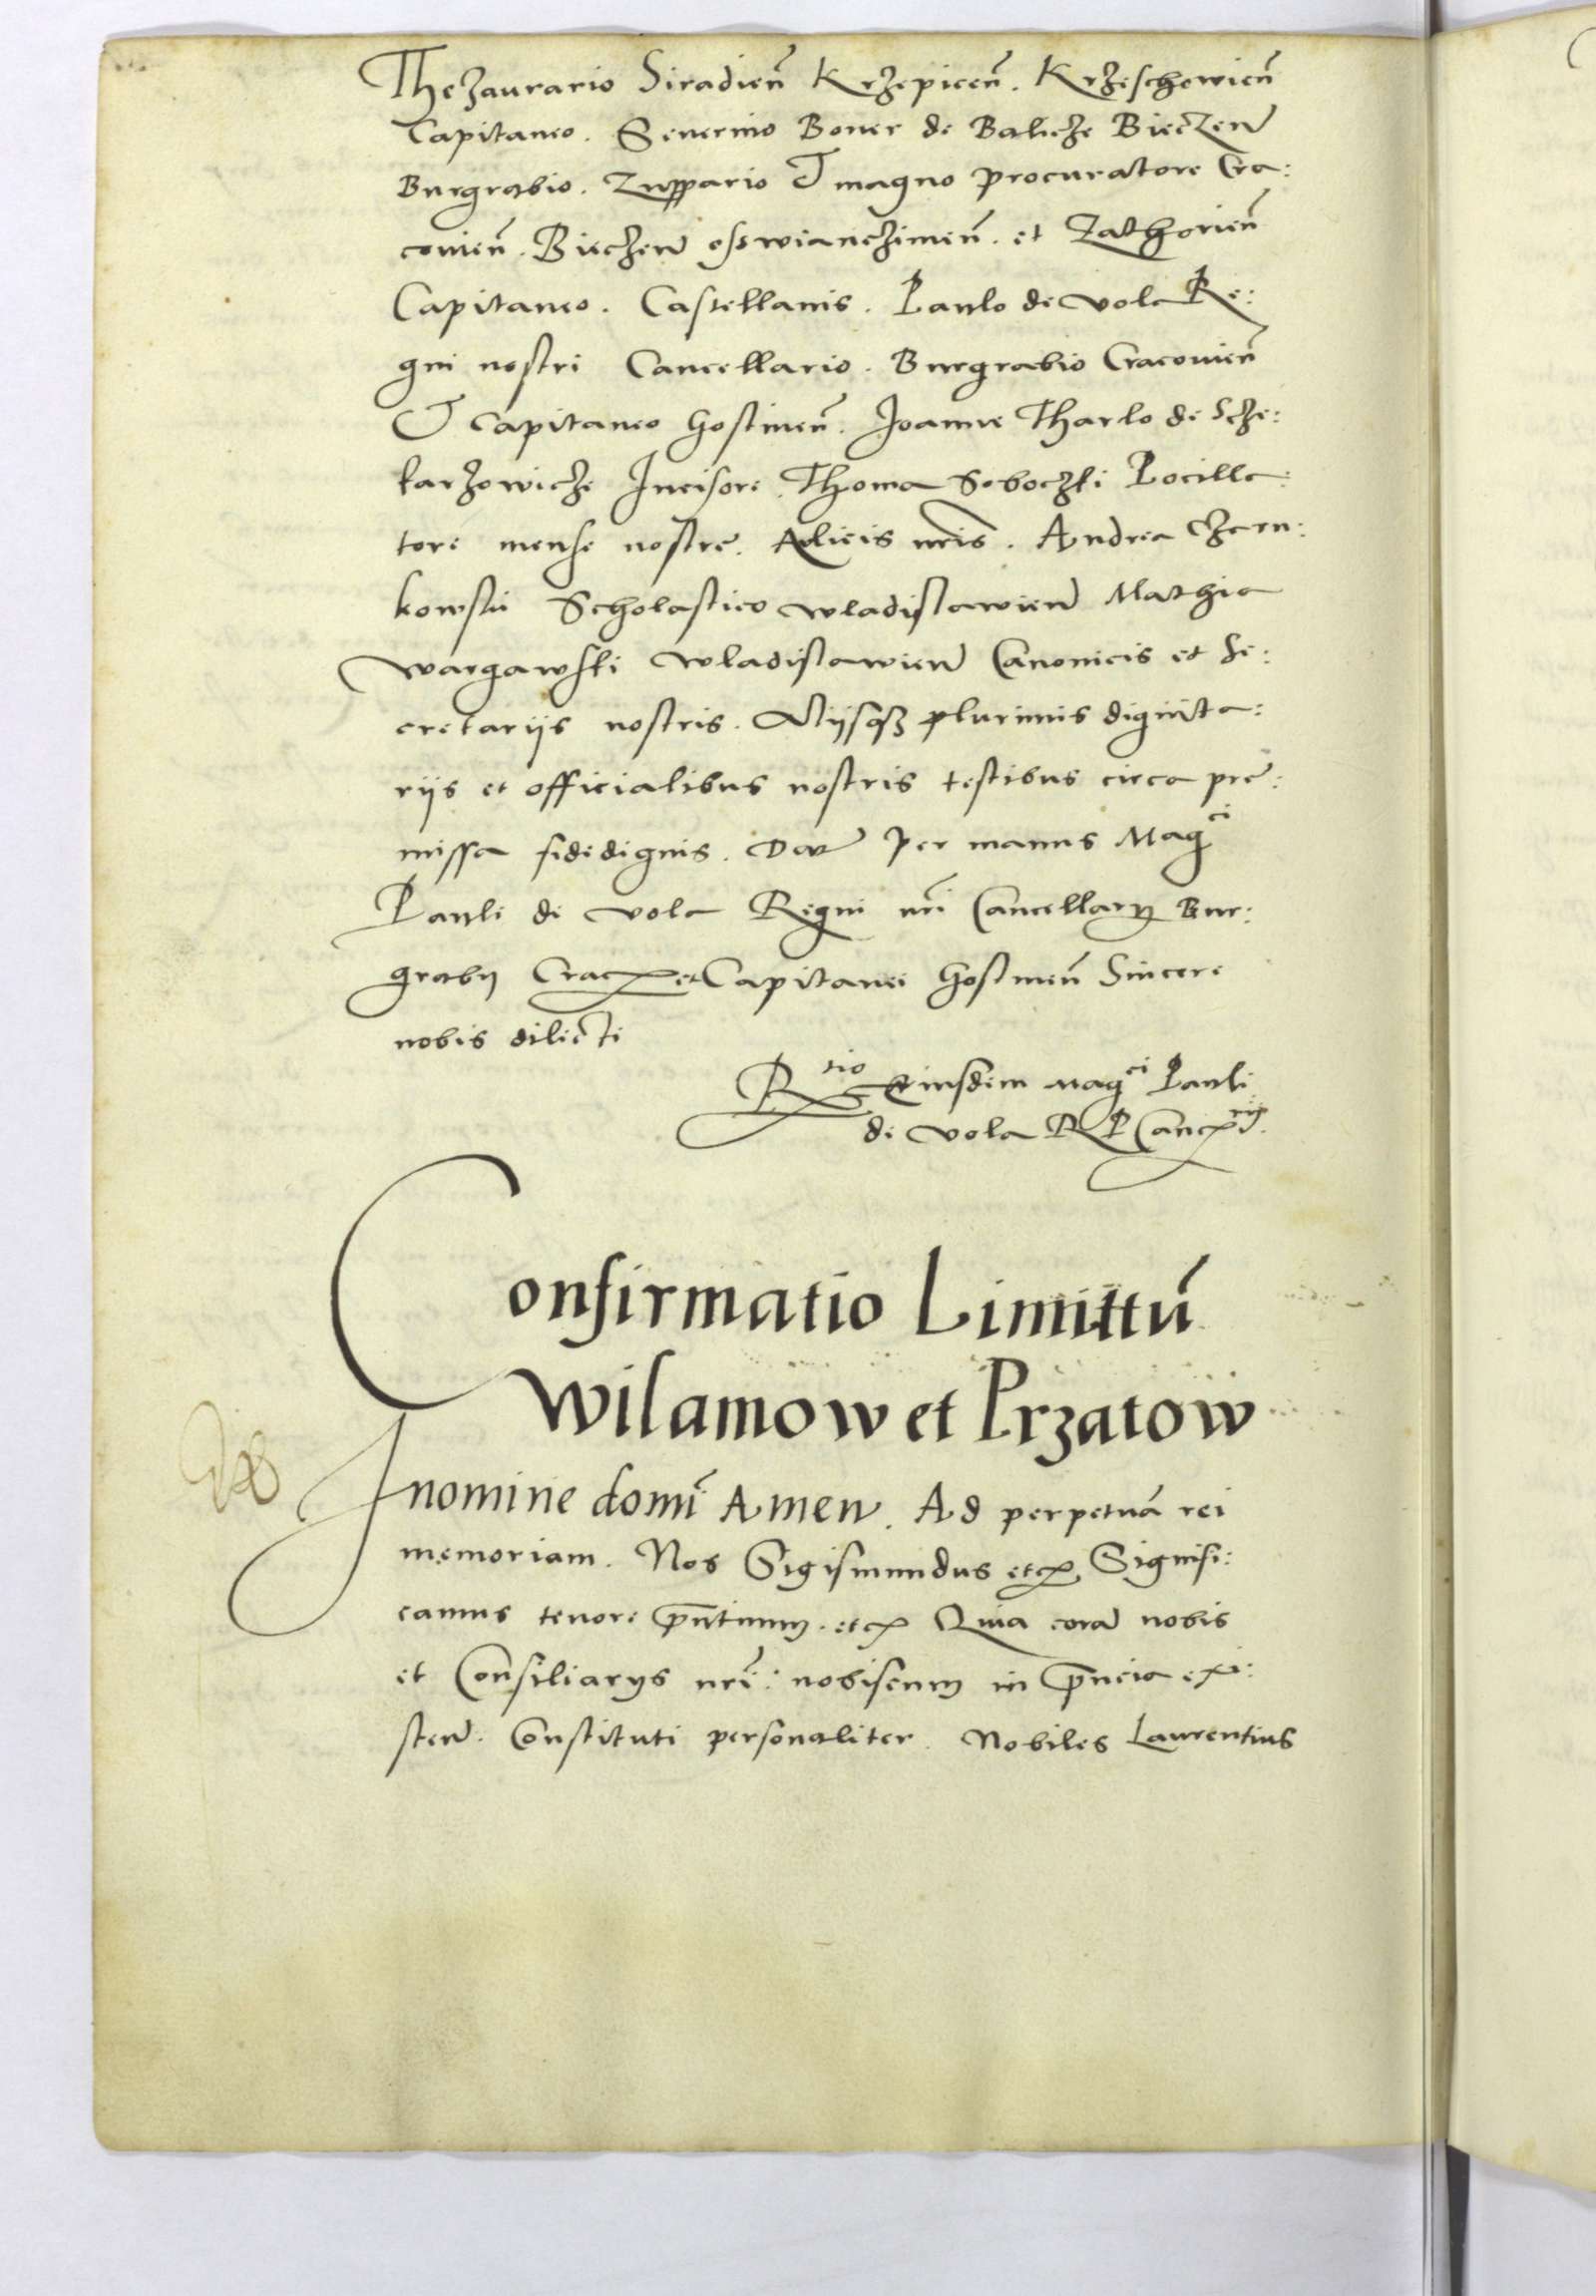 Thezaurario Siradieñ Krzepiceñ. Krzeschowieñ
Capitaneo. Seuerino Boner de Balicze Bieczeñ
Burgrabio. Zuppario et magno procuratore Cra:
couieñ. Bieczeñ osswianczimeñ. et Zathorieñ
Capitaneo. Castellanis. Paulo de vola Re:
gni nostri Cancellario. Burgrabio Cracouieñ
et Capitaneo Gostineñ. Joanne Tharlo de Scze:
karzowicze Incisore. Thoma Soboczki Pocilla:
tore mense nostre. Aulicis nris. Andrea Czarn:
kowski Scholastico wladislawieñ Mathia
wargawski wladislawieñ Canonicis et Se:
cretariis nostris. Aliisqz plurimis dignita:
riis et officialibus nostris testibus circa pre:
missa fidedignis. Dat per manus Mag^ci
Pauli de vola Regni nri Cancellarii Bur:
grabii Crac et Capitanei Gostineñ Sincere
nobis dilecti
R^tio Eiusdem Mag^ci Pauli
de vola R P Canc^rii
Confirmatio Limittũ
Wilamow et Przatow
Jnomine domĩ Amen. Ad perpetuã rei
memoriam. Nos Sigismundus etc Signifi:
camus tenore pñtium. etc Quia corã nobis
et Consiliariis nri: nobiscum in pñcia exi:
steñ. Constituti personaliter. Nobiles Laurentius